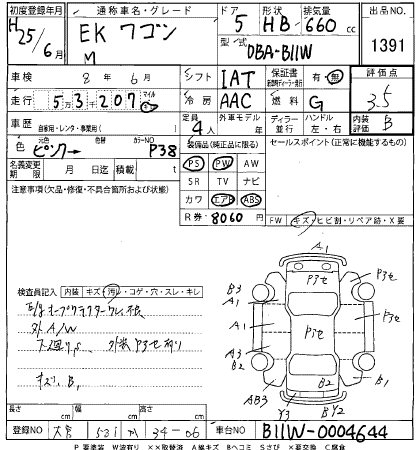 初度登録年月 通称車名・グレード ドア 形状 排気量 出品NO.
H25/6月 EKワゴン M 5 HB 660cc 1391
型式 DBA-B11W
車検 8年 6月 シフト IAT 保証書 有・無 評価点
走行 53207 マイル km 冷房 AAC 燃料 G 3.5
車歴 自家用・レンタ・事業用( ) 定員 4人 外車モデル 年 ディーラー 並行 ハンドル 左・右 内装 B
色 元色 ピンク→ 色替 カラーNO P38 装備品(純正品に限る) セールスポイント(正常に機能するもの)
名義変更期限 月 日 積載 t PS PW AW
注意事項(欠品・修復・不具合箇所および状態) SR TV ナビ
カワ エアB ABS
R券 8060 円 FW キズ・ヒビ割・リペア跡・X要
A1
検査員記入 内装 キズ・汚レ・コゲ・穴・スレ・キレ
B3 P3セ P3セ
A1
外A/W A1 P3セ P3セ
下廻りS 外装P3セ有り A3
B2
キズ、B、 B2 B1
AB3 Y3 BY2
長さ cm 幅 cm 高さ cm A1
登録NO 531 ム 34-06 車台NO B11W-0004644
P 要塗装 W波有り ××取替済 A線キズ Bヘコミ Sさび ×要交換 C腐食